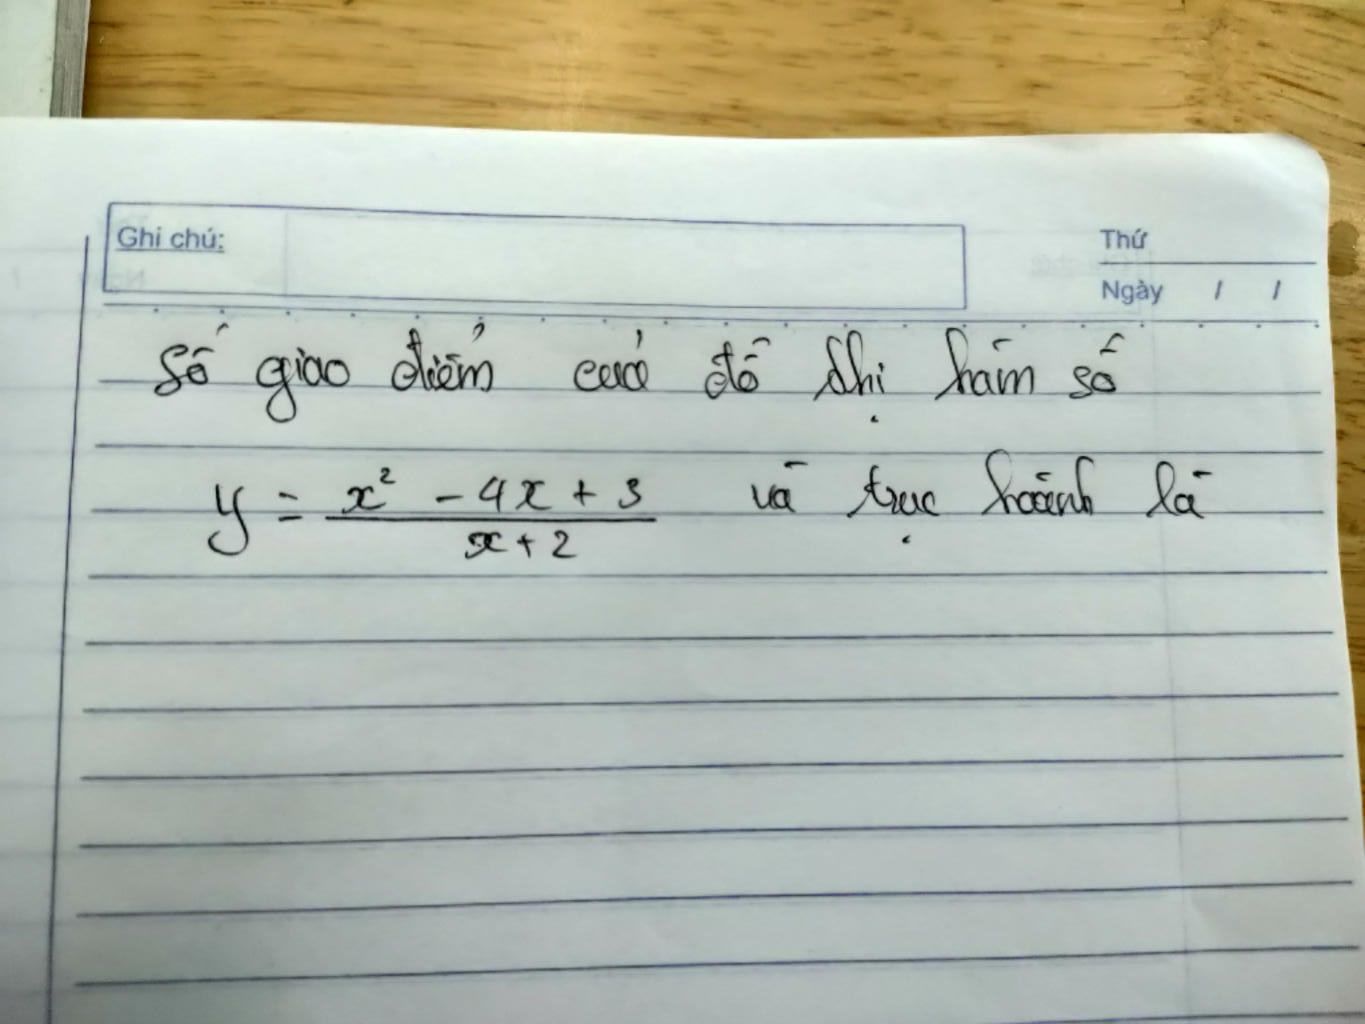 Ghi chú:
Thứ
Ngày / /
Số giao điểm của đồ thị hàm số
y = \frac{x^2 - 4x + 3}{x + 2} và trục hoành là